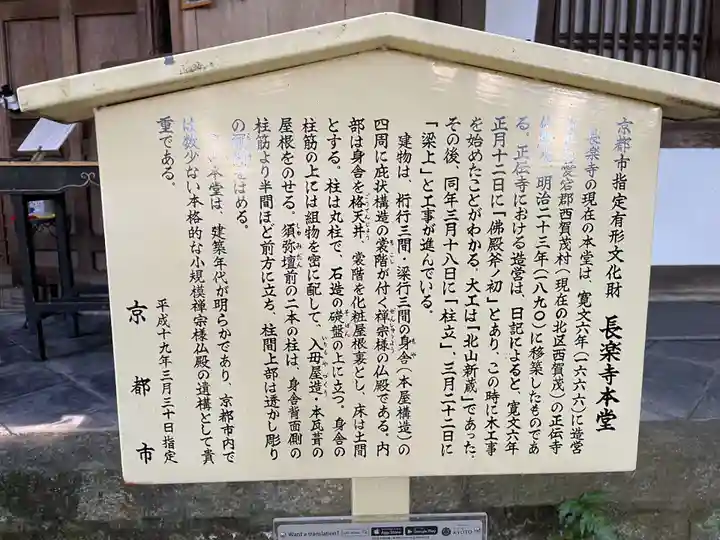 京都市指定有形文化財　長楽寺本堂
長楽寺の現在の本堂は、寛文六年（一六六六）に造営
愛宕郡西賀茂村（現在の北区西賀茂）の正伝寺
明治二十三年（一八九〇）に移築したものであ
る。正伝寺における造営は、日記によると、寛文六年
正月十二日に「佛殿斧ノ初」とあり、この時に木工事
を始めたことがわかる。大工は「北山新蔵」であった。
その後、同年三月十八日に「柱立」、三月二十二日に
「梁上」と工事が進んでいる。
建物は、桁行三間・梁行三間の身舎（本屋構造）の
四周に庇状構造の裳階が付く禅宗様の仏殿である。内
部は身舎を格天井、裳階を化粧屋根裏とし、床は土間
とする。柱は丸柱で、石造の礎盤の上に立つ。身舎の
柱筋の上には組物を密に配して、入母屋造・本瓦葺の
屋根をのせる。須弥壇前の二本の柱は、身舎背面側の
柱筋より半間ほど前方に立ち、柱間上部は透かし彫り
の をはめる。
本堂は、建築年代が明らかであり、京都市内で
は数少ない本格的な小規模禅宗様仏殿の遺構として貴
重である。
平成十九年三月三十日指定
京都市
Want a translation?
App Store
Google Play
KYOTO